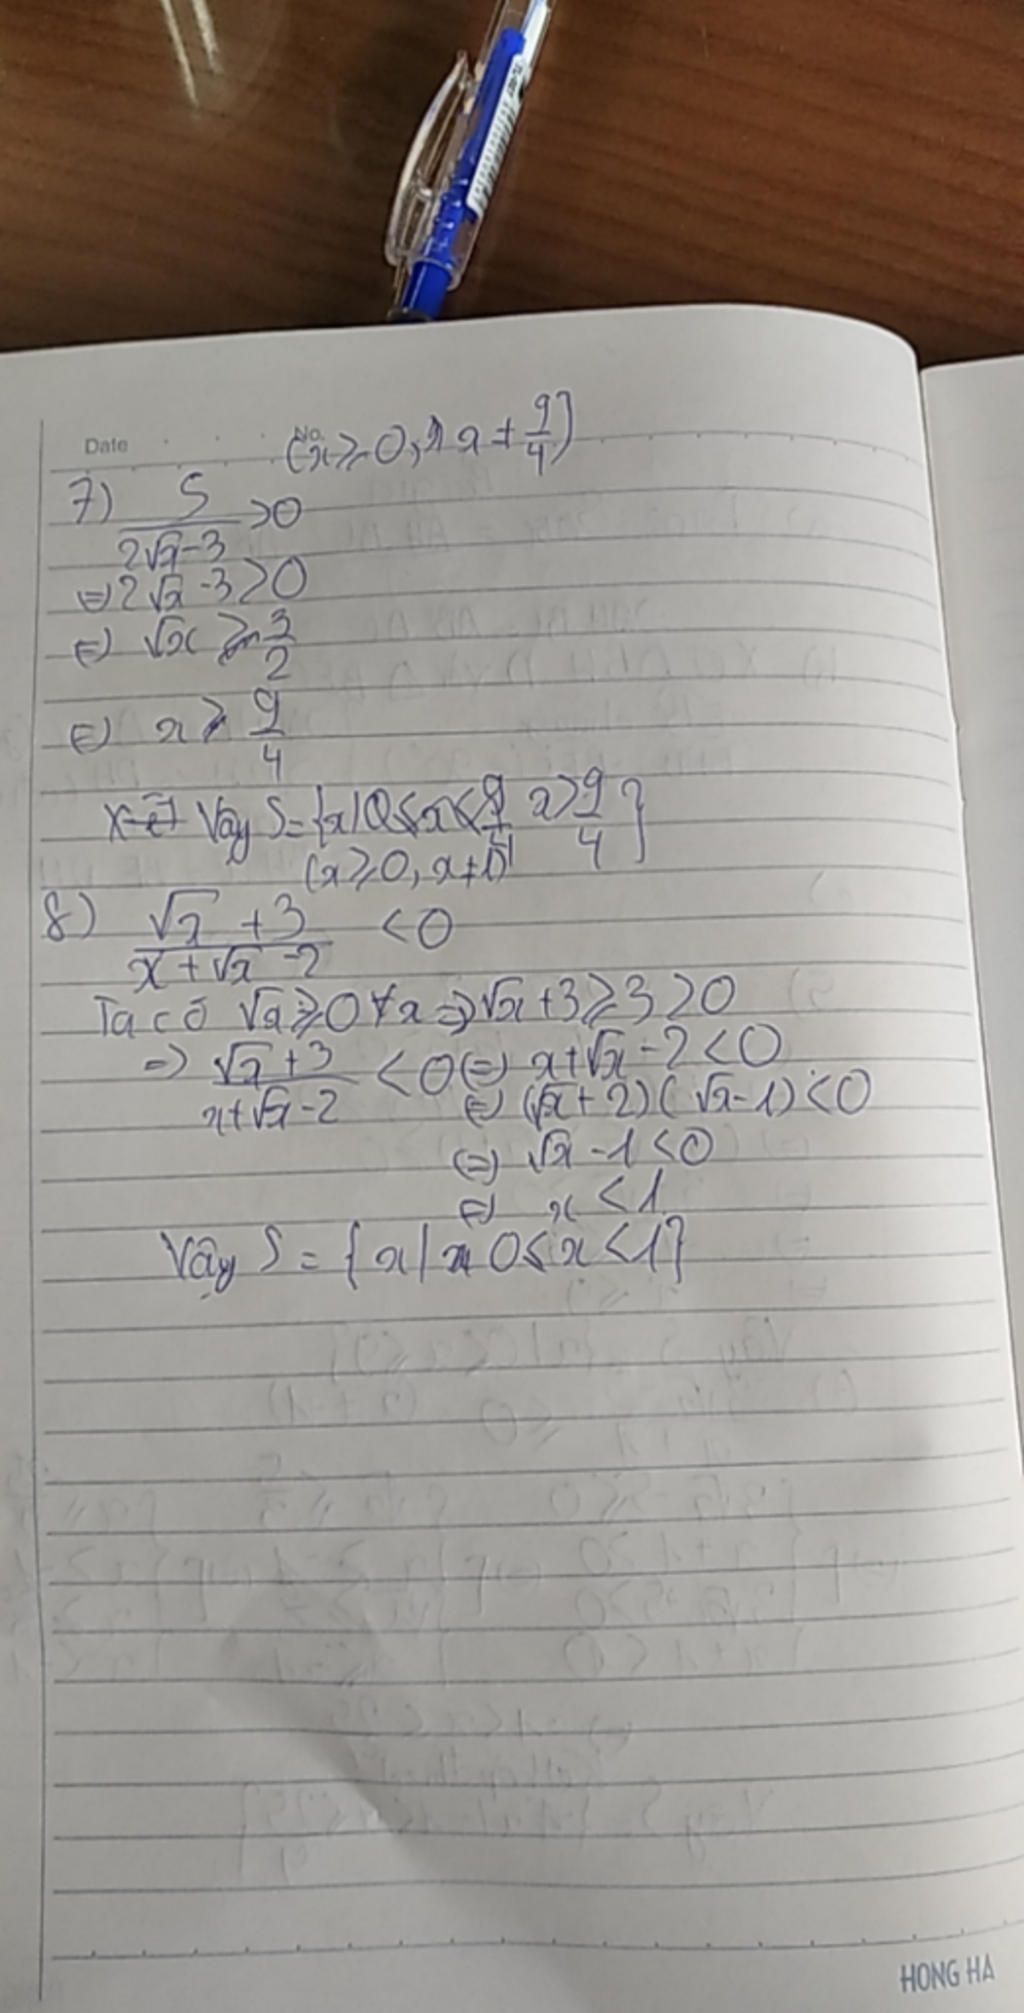 Date No.
(x ≥ 0, x ≠ 9/4)
7) 5/(2√x-3) >0
=> 2√x -3 >0
<=> √x > 3/2
<=> x > 9/4
Vậy S = {x | x > 9/4}
(x ≥ 0, x ≠ 1)
8) (√x +3)/(x+√x -2) <0
Ta có √x ≥ 0 ∀x => √x +3 ≥ 3 > 0
=> (√x +3)/(x+√x -2) <0 <=> x+√x -2 <0
<=> (√x +2)(√x -1) <0
<=> √x -1 <0
<=> x <1
Vậy S = {x | 0 ≤ x < 1}
HONG HA